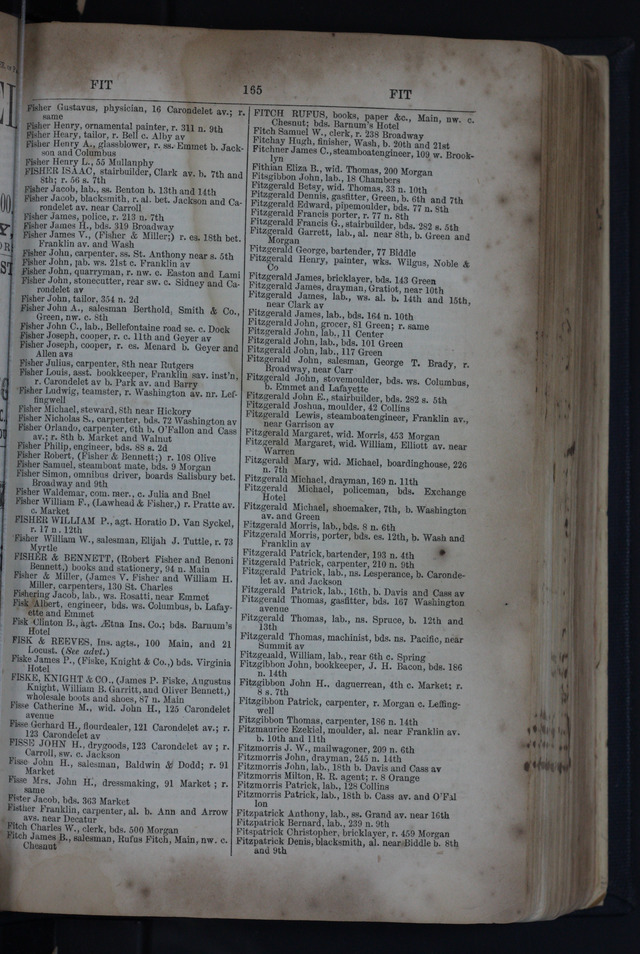 FIT
165
FIT
Fisher Gustavus, physician, 16 Carondelet av.; r.
same
Fisher Henry, ornamental painter, r. 311 n. 9th
Fisher Heary, tailor, r. Bell c. Alby av
Fisher Henry A., glassblower, r. ss. Emmet b. Jack-
son and Columbus
Fisher Henry L., 55 Mullanphy
FISHER ISAAC, stairbuilder, Clark av. b. 7th and
8th; r. 56 s. 7th
Fisher Jacob, lab., ss. Benton b. 13th and 14th
Fisher Jacob, blacksmith, r. al. bet. Jackson and Ca-
rondelet av. near Carroll
Fisher James, police, r. 213 n. 7th
Fisher James H., bds. 319 Broadway
Fisher James V., (Fisher & Miller;) r. es. 18th bet.
Franklin av. and Wash
Fisher John, carpenter, ss. St. Anthony near s. 5th
Fisher John, lab. ws. 21st c. Franklin av
Fisher John, quarryman, r. nw. c. Easton and Lami
Fisher John, stonecutter, rear sw. c. Sidney and Ca-
rondelet av
Fisher John, tailor, 354 n. 2d
Fisher John A., salesman Berthold, Smith & Co.,
Green, nw. c. 8th
Fisher John C., lab., Bellefontaine road se. c. Dock
Fisher Joseph, cooper, r. c. 11th and Geyer av
Fisher Joseph, cooper, r. es. Menard b. Geyer and
Allen avs
Fisher Julius, carpenter, 8th near Rutgers
Fisher Louis, asst. bookkeeper, Franklin sav. inst'n,
r. Carondelet av b. Park av. and Barry
Fisher Ludwig, teamster, r. Washington av. nr. Lef-
fingwell
Fisher Michael, steward, 8th near Hickory
Fisher Nicholas S., carpenter, bds. 72 Washington av
Fisher Orlando, carpenter, 6th b. O'Fallon and Cass
av.; r. 8th b. Market and Walnut
Fisher Philip, engineer, bds. 88 s. 2d
Fisher Robert, (Fisher & Bennett;) r. 108 Olive
Fisher Samuel, steamboat mate, bds. 9 Morgan
Fisher Simon, omnibus driver, boards Salisbury bet.
Broadway and 9th
Fisher Waldemar, com. mer., c. Julia and Buel
Fisher William F., (Lawhead & Fisher,) r. Pratte av.
c. Market
FISHER WILLIAM P., agt. Horatio D. Van Syckel,
r. 17 n. 12th
Fisher William W., salesman, Elijah J. Tuttle, r. 73
Myrtle
FISHER & BENNETT, (Robert Fisher and Benoni
Bennett,) books and stationery, 94 n. Main
Fisher & Miller, (James V. Fisher and William H.
Miller, carpenters, 130 St. Charles
Fishering Jacob, lab., ws. Rosatti, near Emmet
Fisk Albert, engineer, bds. ws. Columbus, b. Lafay-
ette and Emmet
Fisk Clinton B., agt. Ætna Ins. Co.; bds. Barnum's
Hotel
FISK & REEVES, Ins. agts., 100 Main, and 21
Locust. (See advt.)
Fiske James P., (Fiske, Knight & Co.,) bds. Virginia
Hotel
FISKE, KNIGHT & CO., (James P. Fiske, Augustus
Knight, William B. Garritt, and Oliver Bennett,)
wholesale boots and shoes, 87 n. Main
Fisse Catherine M., wid. John H., 125 Carondelet
avenue
Fisse Gerhard H., flourdealer, 121 Carondelet av.; r.
123 Carondelet av
FISSE JOHN H., drygoods, 123 Carondelet av; r.
Carroll, sw. c. Jackson
Fisse John H., salesman, Baldwin & Dodd; r. 91
Market
Fisse Mrs. John H., dressmaking, 91 Market; r.
same
Fister Jacob, bds. 363 Market
Fisther Franklin, carpenter, al. b. Ann and Arrow
avs. near Decatur
Fitch Charles W., clerk, bds. 500 Morgan
Fitch James B., salesman, Rufus Fitch, Main, nw. c.
Chesnut
FITCH RUFUS, books, paper &c., Main, nw. c.
Chesnut; bds. Barnum's Hotel
Fitch Samuel W., clerk, r. 238 Broadway
Fitchay Hugh, finisher, Wash, b. 20th and 21st
Fitchner James C., steamboatengineer, 109 w. Brook-
lyn
Fithian Eliza B., wid. Thomas, 200 Morgan
Fitsgibbon John, lab., 18 Chambers
Fitzgerald Betsy, wid. Thomas, 33 n. 10th
Fitzgerald Dennis, gasfitter, Green, b. 6th and 7th
Fitzgerald Edward, pipemoulder, bds. 77 n. 8th
Fitzgerald Francis porter, r. 77 n. 8th
Fitzgerald Francis G., stairbuilder, bds. 282 s. 5th
Fitzgerald Garrett, lab., al. near 8th, b. Green and
Morgan
Fitzgerald George, bartender, 77 Biddle
Fitzgerald Henry, painter, wks. Wilgus, Noble &
Co
Fitzgerald James, bricklayer, bds. 143 Green
Fitzgerald James, drayman, Gratiot, near 10th
Fitzgerald James, lab., ws. al. b. 14th and 15th,
near Clark av
Fitzgerald James, lab., bds. 164 n. 10th
Fitzgerald John, grocer, 81 Green; r. same
Fitzgerald John, lab., 11 Center
Fitzgerald John, lab., bds. 101 Green
Fitzgerald John, lab., 117 Green
Fitzgerald John, salesman, George T. Brady, r.
Broadway, near Carr
Fitzgerald John, stovemoulder, bds. ws. Columbus,
b. Emmet and Lafayette
Fitzgerald John E., stairbuilder, bds. 282 s. 5th
Fitzgerald Joshua, moulder, 42 Collins
Fitzgerald Lewis, steamboatengineer, Franklin av.,
near Garrison av
Fitzgerald Margaret, wid. Morris, 453 Morgan
Fitzgerald Margaret, wid. William, Elliott av. near
Warren
Fitzgerald Mary, wid. Michael, boardinghouse, 226
n. 7th
Fitzgerald Michael, drayman, 169 n. 11th
Fitzgerald Michael, policeman, bds. Exchange
Hotel
Fitzgerald Michael, shoemaker, 7th, b. Washington
av. and Green
Fitzgerald Morris, lab., bds. 8 n. 6th
Fitzgerald Morris, porter, bds. es. 12th, b. Wash and
Franklin av
Fitzgerald Patrick, bartender, 193 n. 4th
Fitzgerald Patrick, carpenter, 210 n. 9th
Fitzgerald Patrick, lab., ns. Lesperance, b. Caronde-
let av. and Jackson
Fitzgerald Patrick, lab., 16th, b. Davis and Cass av
Fitzgerald Thomas, gasfitter, bds. 167 Washington
avenue
Fitzgerald Thomas, lab., ns. Spruce, b. 12th and
13th
Fitzgerald Thomas, machinist, bds. ns. Pacific, near
Summit av
Fitzgerald, William, lab., rear 6th c. Spring
Fitzgibbon John, bookkeeper, J. H. Bacon, bds. 186
n. 14th
Fitzgibbon John H., daguerrean, 4th c. Market; r.
8 s. 7th
Fitzgibbon Patrick, carpenter, r. Morgan c. Leffing-
well
Fitzgibbon Thomas, carpenter, 186 n. 14th
Fitzmaurice Ezekiel, moulder, al. near Franklin av.
b. 10th and 11th
Fitzmorris J. W., mailwagoner, 209 n. 6th
Fitzmorris John, drayman, 245 n. 14th
Fitzmorris John, lab., 18th b. Davis and Cass av
Fitzmorris Milton, R. R. agent; r. 8 Orange
Fitzmorris Patrick, lab., 128 Collins
Fitzmorris Patrick, lab., 18th b. Cass av. and O'Fal
lon
Fitzpatrick Anthony, lab., ss. Grand av. near 16th
Fitzpatrick Bernard, lab., 239 n. 9th
Fitspatrick Christopher, bricklayer, r. 459 Morgan
Fitzpatrick Denis, blacksmith, al. near Biddle b. 8th
and 9th